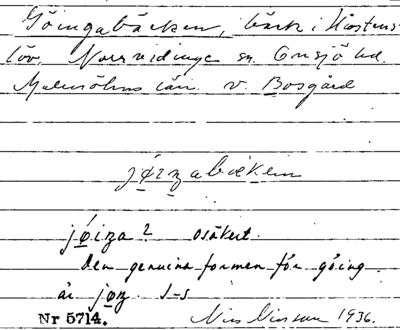 Göingabäcken, bäck i Hästens
löv, Norrvidinge sn Onsjö hd.
Malmöhus län. v. Bosgård
jøiŋabæken
jǿiŋa? osäkert.
Den genuina formen för göing
är jøŋ. S-s
Nr 5714. Nils Nilsson 1936.